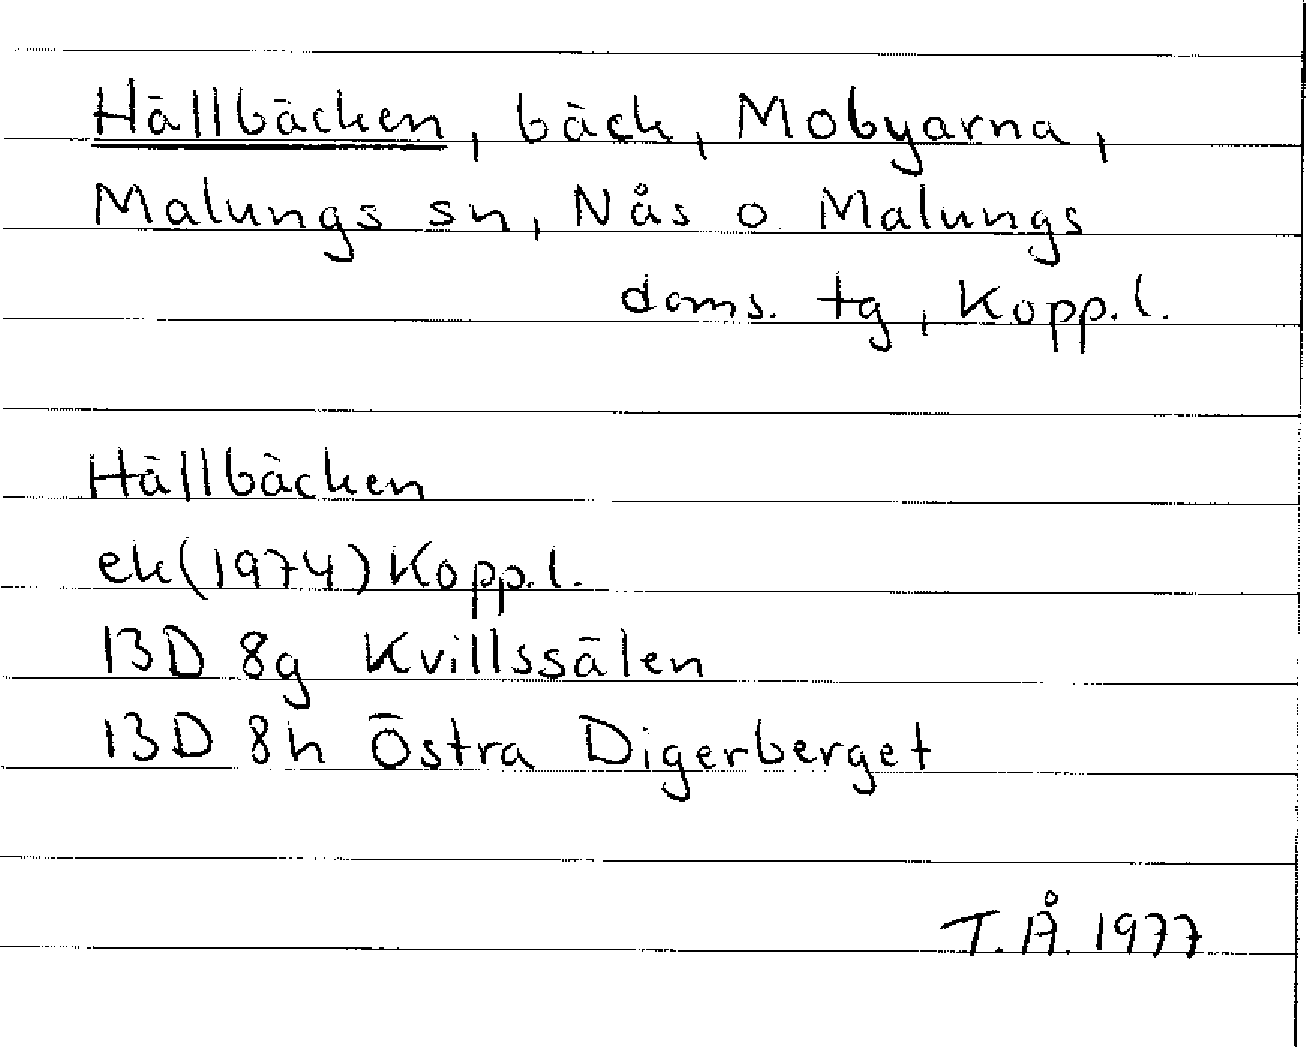 Hällbäcken, bäck, Mobyarna,
Malungs sn, Nås o Malungs
doms. tg, Kopp. l.
Hällbäcken
ek (1974) Kopp. l.
13D 8g Kvillssälen
13D 8h Östra Digerberget
T. Å. 1977